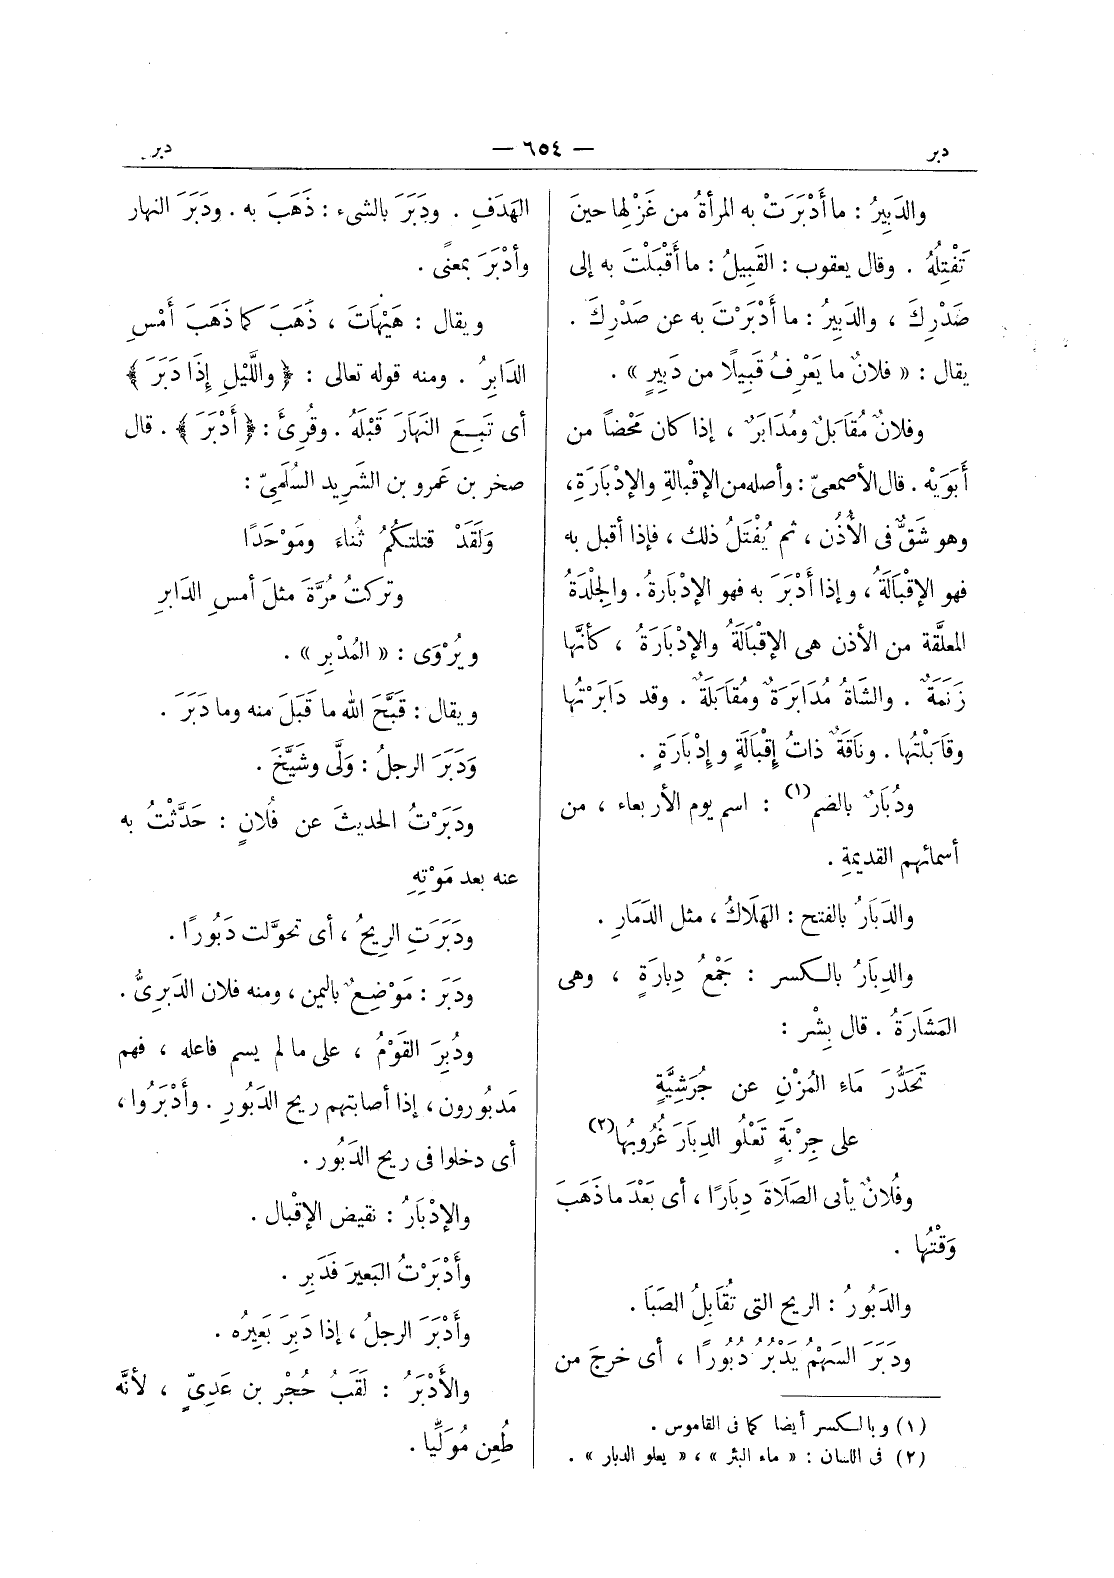 دبر — ٦٥٤ — دبر
والدَبِيرُ : ما أَدْبَرَتْ به المرأةُ من غَزْلِها حينَ
تَفْتِلُهُ . وقال يعقوب : القَبِيلُ : ما أَقْبَلْتَ به إلى
صَدْرِكَ ، والدَبِيرُ : ما أَدْبَرْتَ به عن صَدْرِكَ .
يقال : « فلانٌ ما يَعْرِفُ قَبِيلًا من دَبِيرٍ » .
وفلانٌ مُقَابَلٌ ومُدَابَرٌ ، إذا كان مَحْضاً من
أَبَوَيْهِ . قال الأصمعىّ : وأصله من الإقْبالةِ والإدْبَارَةِ ،
وهو شَقٌّ فى الأُذُن ، ثم يُفْتَلُ ذلك ، فإذا أقبل به
فهو الإقْبَالَةُ ، وإذا أَدْبَرَ به فهو الإدْبارةُ . والجِلْدَةُ
المعلَّقة من الأذن هى الإقْبَالَةُ والإدْبَارَةُ ، كأنَّها
زَنَمَةٌ . والشَاةُ مُدَابَرَةٌ ومُقَابَلَةٌ . وقد دَابَرْتُها
وقابَلْتُها . وناقَةٌ ذاتُ إقْبالَةٍ وإدْبارَةٍ .
ودُبَارٌ بالضم (١) : اسم يوم الأربعاء ، من
أسمائهم القديمةِ .
والدَبَارُ بالفتح : الهَلَاكُ ، مثل الدَمَارِ .
والدِبَارُ بالكسر : جَمْعُ دِبارَةٍ ، وهى
المَشَارَةُ . قال بِشْر :
تَحَدُّرَ مَاءِ المُزْنِ عن جُرَشِيَّةٍ
على جِرْبَةٍ تَعْلُو الدِبَارَ غُرُوبُها (٢)
وفُلَانٌ يأتى الصَلَاةَ دِبَارًا ، أى بَعْدَ ما ذَهَبَ
وَقْتُها .
والدَبُورُ : الريح التى تُقَابِلُ الصَبَا .
ودَبَرَ السَهْمُ يَدْبُرُ دُبُورًا ، أى خرجَ من
(١) وبالكسر أيضا كما فى القاموس .
(٢) فى اللسان : « ماء البئر » ، « يعلو الدبار » .
الهَدَفِ . ودَبَرَ بالشىء : ذَهَبَ به . ودَبَرَ النهار
وأَدْبَرَ بمعنًى .
ويقال : هَيْهَاتَ ، ذَهَبَ كما ذَهَبَ أَمْسِ
الدَابِرُ . ومنه قوله تعالى : ﴿ واللَّيْلِ إِذَا دَبَرَ ﴾
أى تَبِعَ النَهَارَ قَبْلَهُ . وقُرِئَ : ﴿ أَدْبَرَ ﴾ . قال
صخر بن عَمرو بن الشَرِيد السُلَمِىّ :
وَلَقَدْ قتلتكُمُ ثُناءَ ومَوْحَدًا
وتركتُ مُرَّةَ مثلَ أمسِ الدَابرِ
ويُرْوَى : « المُدْبِرِ » .
ويقال : قَبَّحَ الله ما قَبَلَ منه وما دَبَرَ .
وَدَبَرَ الرجلُ : وَلَّى وشَيَّخَ .
ودَبَرْتُ الحديثَ عن فُلانٍ : حَدَّثْتُ به
عنه بعد مَوْتِهِ
ودَبَرَتِ الرِيحُ ، أى تحوَّلت دَبُورًا .
ودَبَر : مَوْضِعٌ باليمن ، ومنه فلان الدَبَرِىُّ .
ودُبِرَ القَوْمُ ، على ما لم يسم فاعله ، فهم
مَدبُورون ، إذا أصابتهم ريح الدَبُورِ . وأَدْبَرُوا ،
أى دخلوا فى ريح الدَبُور .
والإدْبَارُ : نقيض الإقْبال .
وأَدْبَرْتُ البَعيرَ فَدَبِر .
وأَدْبَرَ الرجلُ ، إذا دَبِرَ بَعِيرُه .
والأَدْبَرُ : لَقَبُ حُجْرِ بن عَدِىٍّ ، لأنَّه
طُعِن مُوَلِّيا .